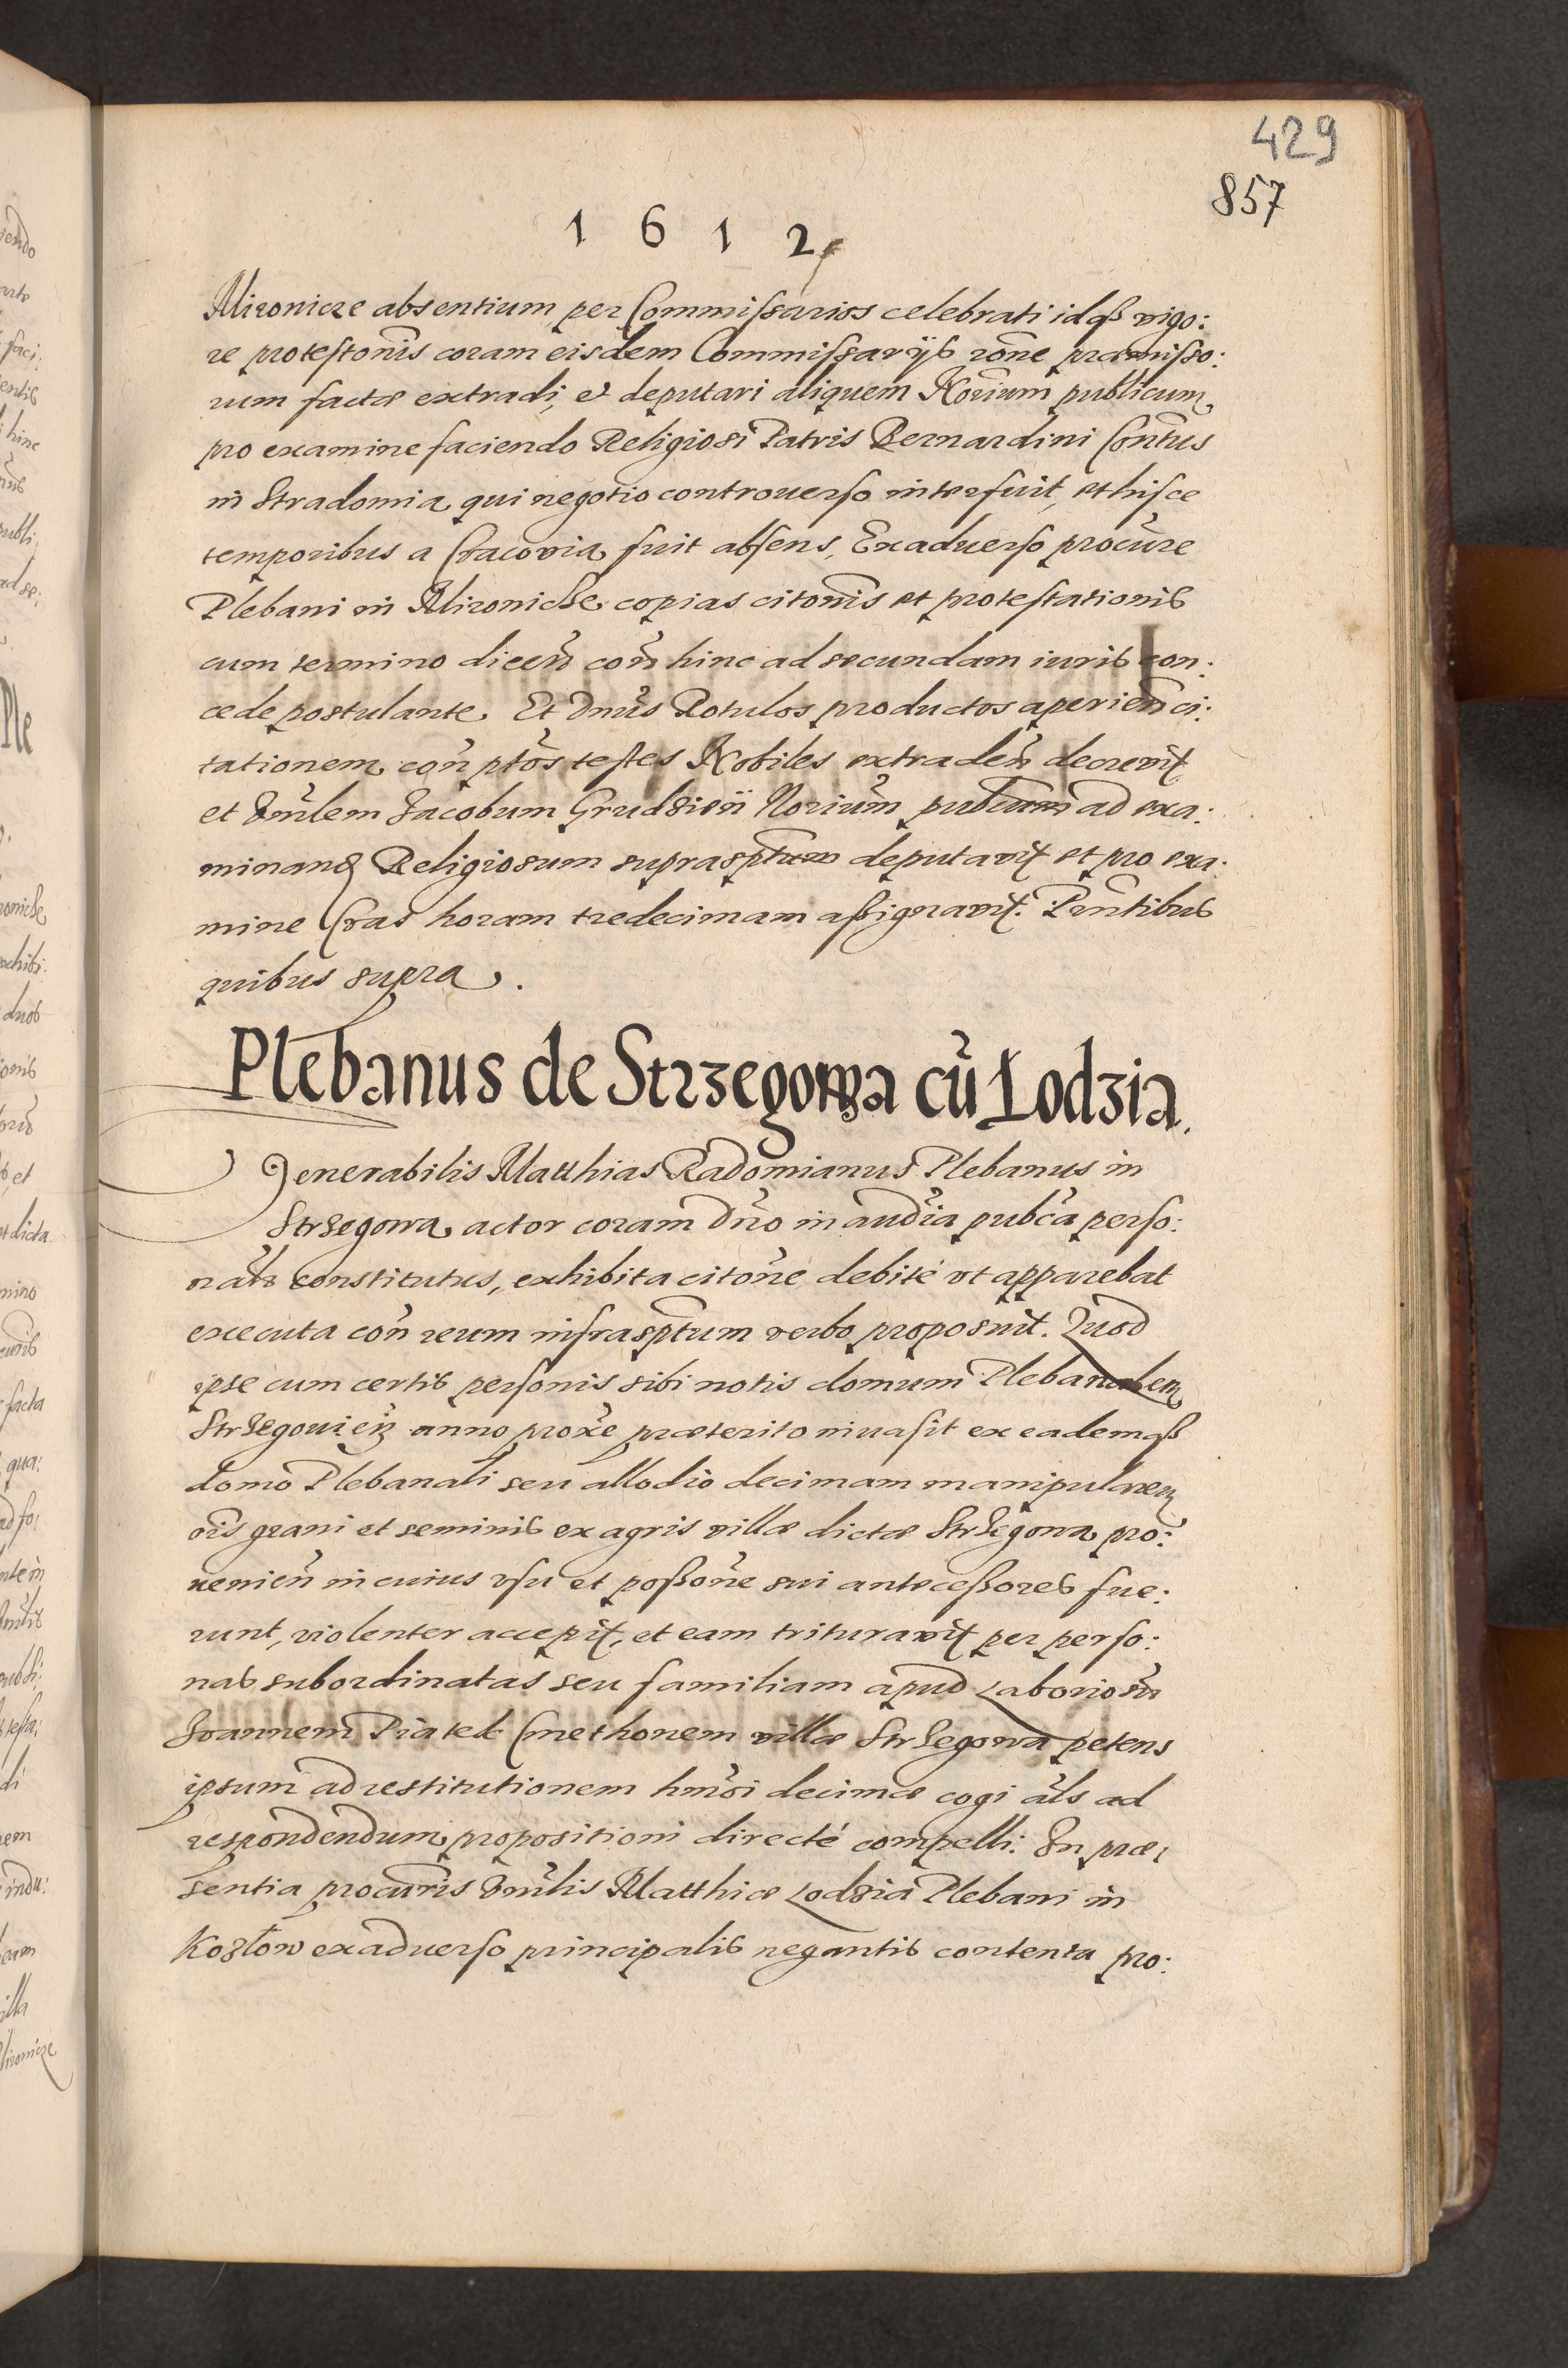 429
857
1612
Mironicze absentium per Commissarios celebrati idq3 vigo:
re protestonis coram eisdem Commissarijs rone praemisso:
rum factae extradi, et deputari aliquem Norium publicum
pro examine faciendo Religiosi Patris Bernardini Contus
in Stradomia qui negotio controuerso interfuit, et hisce
temporibus a Cracovia fuit absens, Exaduerso procure
Plebani in Mironicze copias citonis et protestationis
cum termino dicen con hinc ad secundam iuris con:
cede postulante. Et Dnus Rotulos productos aperien ci:
tationem con ptos testes Nobiles extraden decrevit
et Hnulem Jacobum Grudzisii Norium publicum ad exa:
minand Religiosum suprasptum deputavit et pro exa:
mine Cras horam tredecimam assignavit. Pntibus
quibus supra.
Plebanus de Strzegowa cū Lodzia.
Venerabilis Matthias Radomianus Plebanus in
Strzegowa actor coram Dno in audia publca perso:
nalr constitutus, exhibita citone debité ut apparebat
executa con reum infrasptum verbo proposuit. Quod
ipse cum certis personis sibi notis domum Plebanalem
Strzegouien anno proxe praeterito inuasit ex eademq3
domo Plebanali seu allodio decimam manipularem
ois grani et seminis ex agris villae dictae Strzegowa pro:
uenien in cuius usu et possone sui antecessores fue:
runt, violenter accepit, et eam trituravit per perso:
nas subordinatas seu familiam apud Laboriosu
Joannem Piatek Cmethonem villae Strzegowa petens
ipsum ad restitutionem hmoi decimae cogi als ad
respondendum propositioni directé compelli: In prae:
sentia procuris Hnulis Matthiae Lodzia Plebani in
Kozłow exaduerso principalis negantis contenta pro: